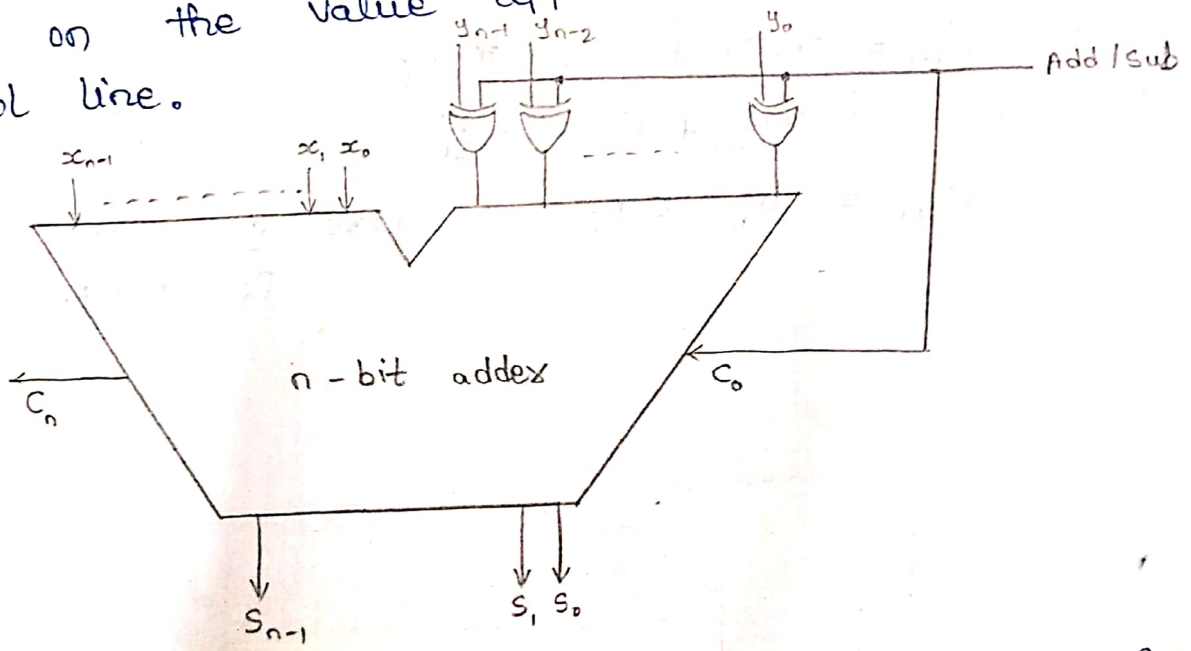 on the value
line.
yₙ₋₁ yₙ₋₂ y₀
Add / Sub
xₙ₋₁ x₁ x₀
n-bit adder
Cₙ C₀
Sₙ₋₁ S₁ S₀